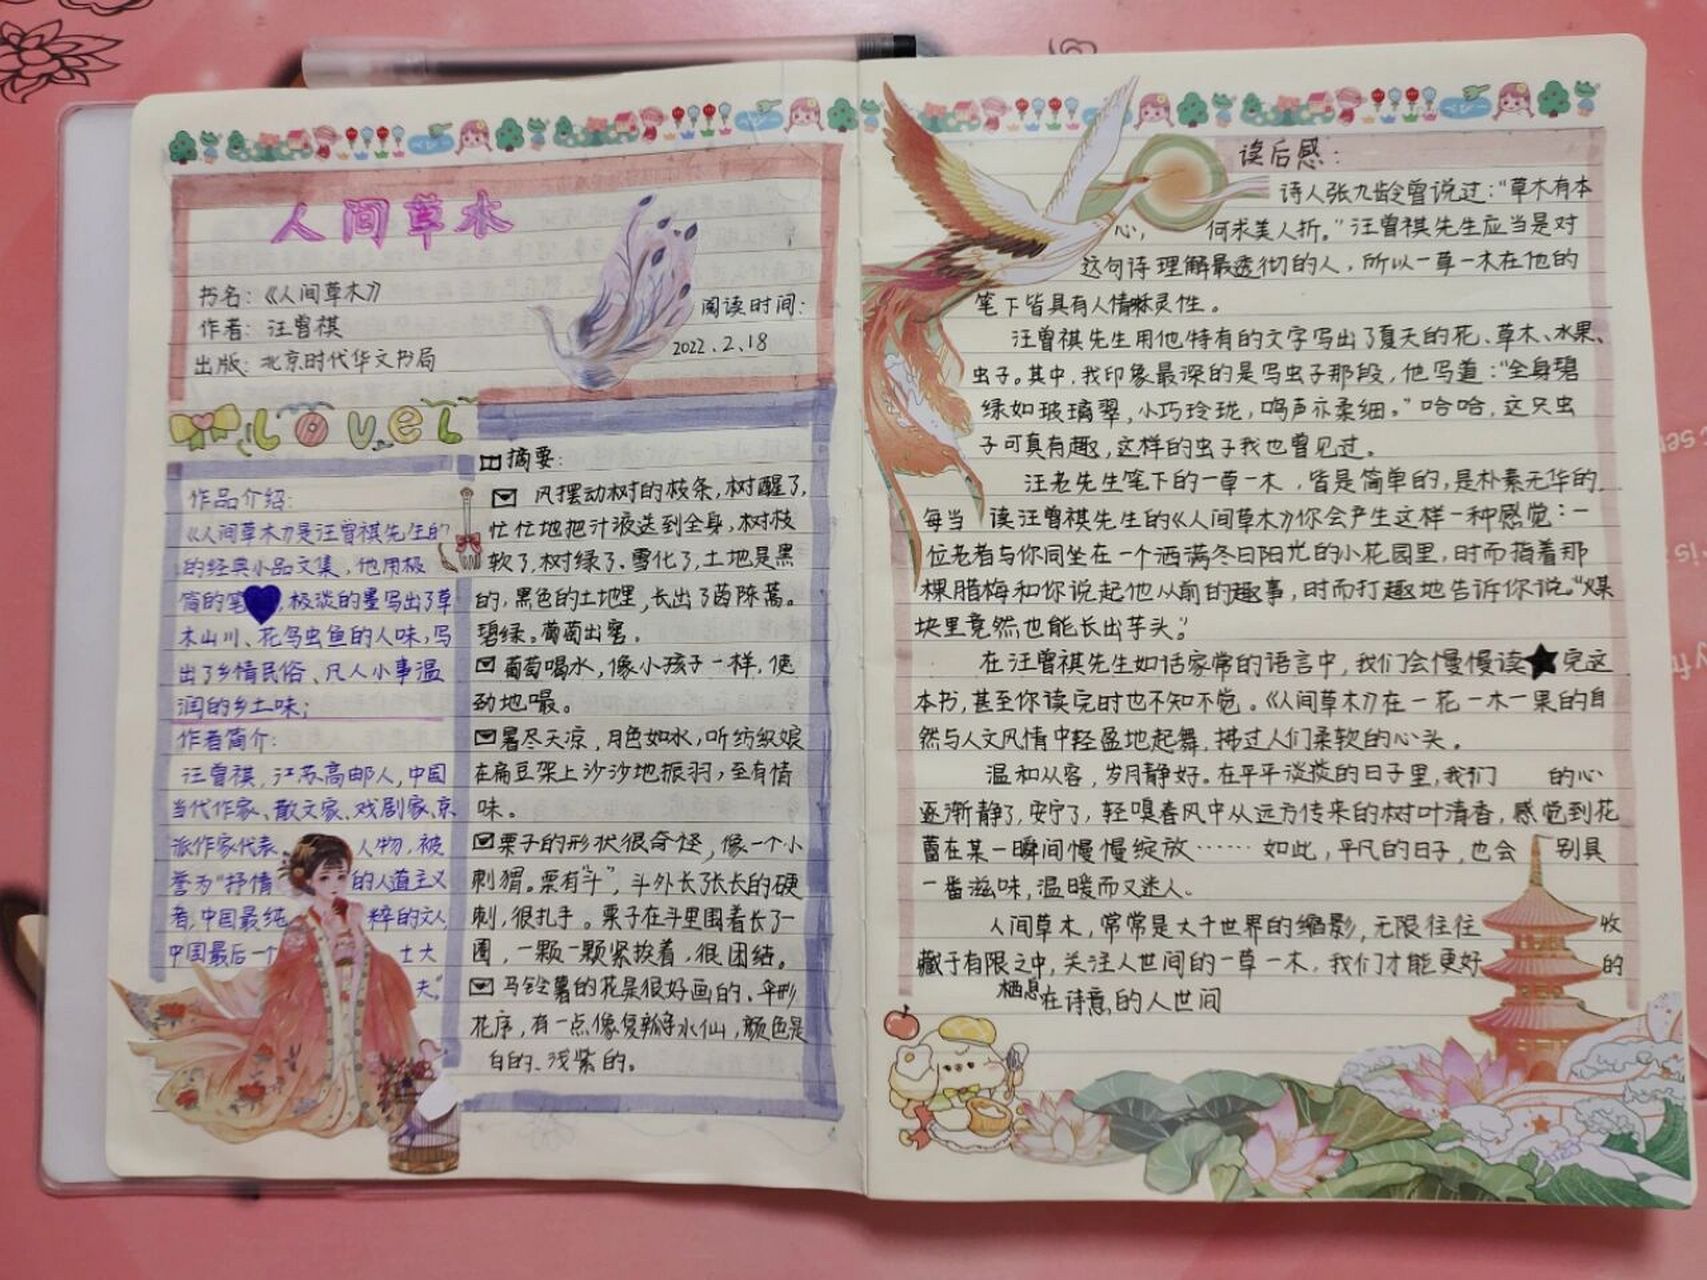 人间草木
书名：《人间草木》
作者：汪曾祺
出版：北京时代华文书局
阅读时间：
2022.2.18
Lovel
作品介绍：
《人间草木》是汪曾祺先生的
的经典小品文集，他用极
简的笔，极淡的墨写出了草
木山川、花鸟虫鱼的人味，写
出了乡情民俗、凡人小事温
润的乡土味；
作者简介：
汪曾祺，江苏高邮人，中国
当代作家、散文家、戏剧家、京
派作家代表人物，被
誉为“抒情的人道主义
者，中国最纯粹的文人，
中国最后一个士大
夫”。
摘要：
风摆动树的枝条，树醒了，
忙忙地把汁液送到全身，树枝
软了，树绿了、雪化了，土地是黑
的，黑色的土地里，长出了茵陈蒿。
碧绿。葡萄出窖。
葡萄喝水，像小孩子一样，使
劲地嘬。
暑尽天凉，月色如水，听纺织娘
在扁豆架上沙沙地振羽，至有情
味。
栗子的形状很奇怪，像一个小
刺猬。栗有“斗”，斗外长了长长的硬
刺，很扎手。栗子在斗里围着长了一
圈，一颗一颗紧挨着，很团结。
马铃薯的花是很好画的、伞形
花序，有一点像复瓣水仙，颜色是
白的、浅紫的。
读后感：
诗人张九龄曾说过：“草木有本
心，何求美人折。”汪曾祺先生应当是对
这句诗理解最透彻的人，所以一草一木在他的
笔下皆具有人情味灵性。
汪曾祺先生用他特有的文字写出了夏天的花、草木、水果、
虫子。其中，我印象最深的是写虫子那段，他写道：“全身碧
绿如玻璃翠，小巧玲珑，鸣声亦柔细。”哈哈，这只虫
子可真有趣，这样的虫子我也曾见过。
汪老先生笔下的一草一木，皆是简单的，是朴素无华的，
每当读汪曾祺先生的《人间草木》你会产生这样一种感觉：一
位老者与你同坐在一个洒满冬日阳光的小花园里，时而指着那
棵腊梅和你说起他从前的趣事，时而打趣地告诉你说。“煤
块里竟然也能长出芋头。”
在汪曾祺先生如话家常的语言中，我们会慢慢读完这
本书，甚至你读完时也不知不觉。《人间草木》在一花一木一果的自
然与人文风情中轻盈地起舞，拂过人们柔软的心头。
温和从容，岁月静好。在平平淡淡的日子里，我们的心
逐渐静了，安宁了，轻嗅春风中从远方传来的树叶清香，感觉到花
蕾在某一瞬间慢慢绽放……如此，平凡的日子，也会别具
一番滋味，温暖而又迷人。
人间草木，常常是大千世界的缩影，无限往往收
藏于有限之中，关注人世间的一草一木，我们才能更好的
栖息在诗意的人世间